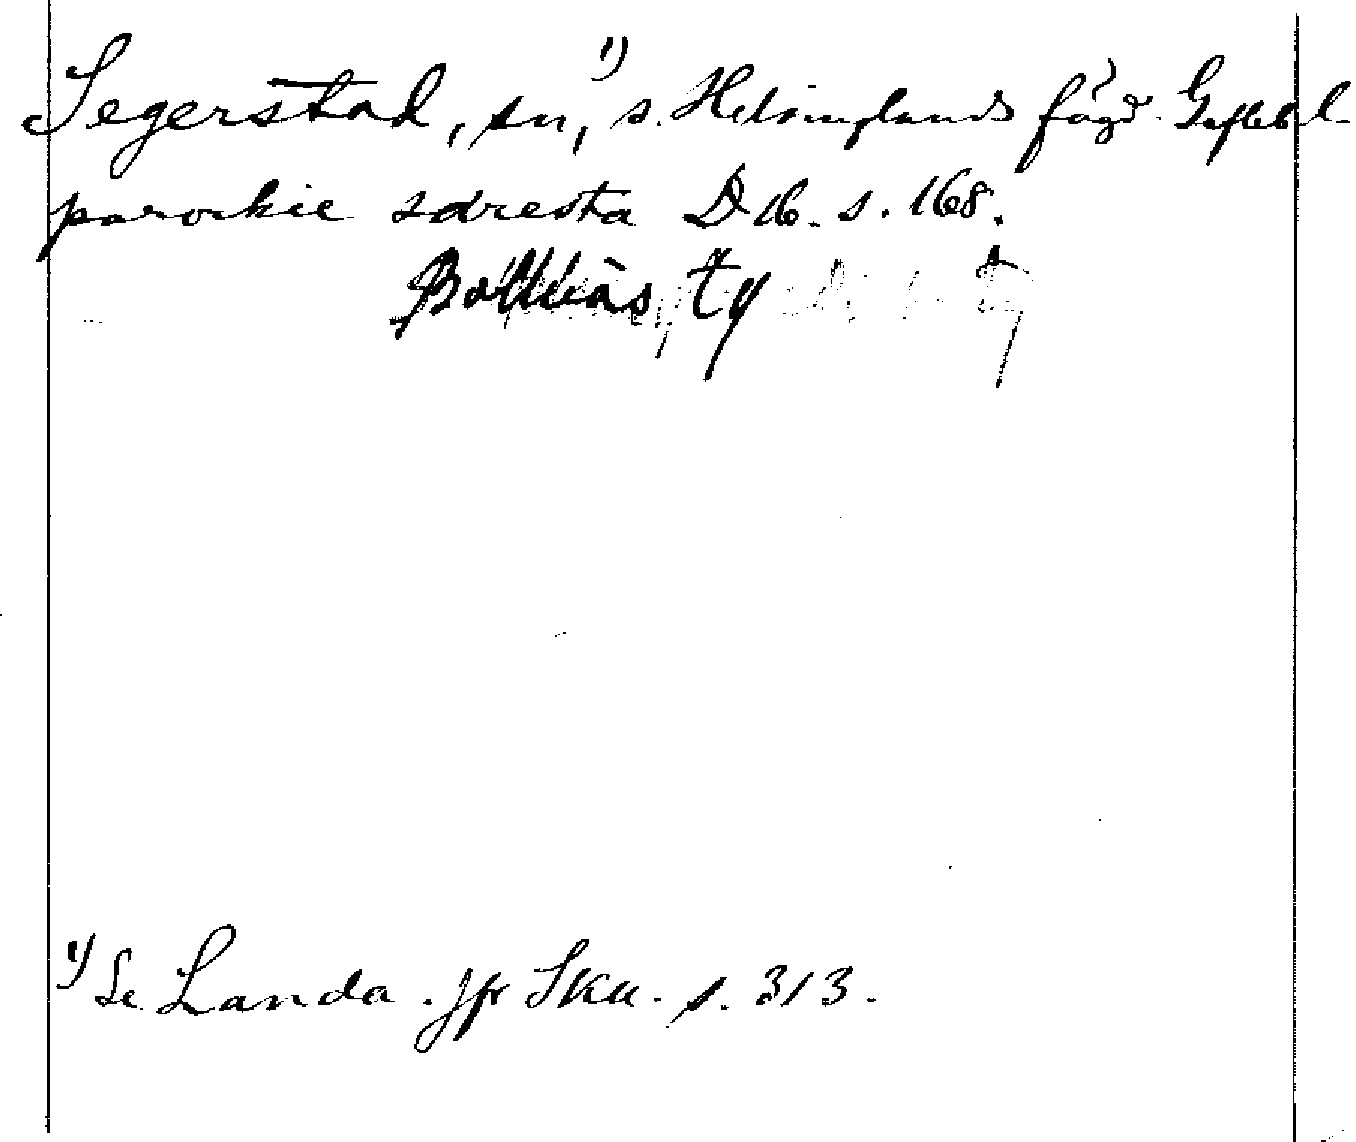 Segerstad, sn,¹⁾ s. Helsinglands fögd. Gefleb. l.
parockie Sdresta D 16. s. 168.
ty
¹⁾ Se Landa. jfr Sku. s. 313.